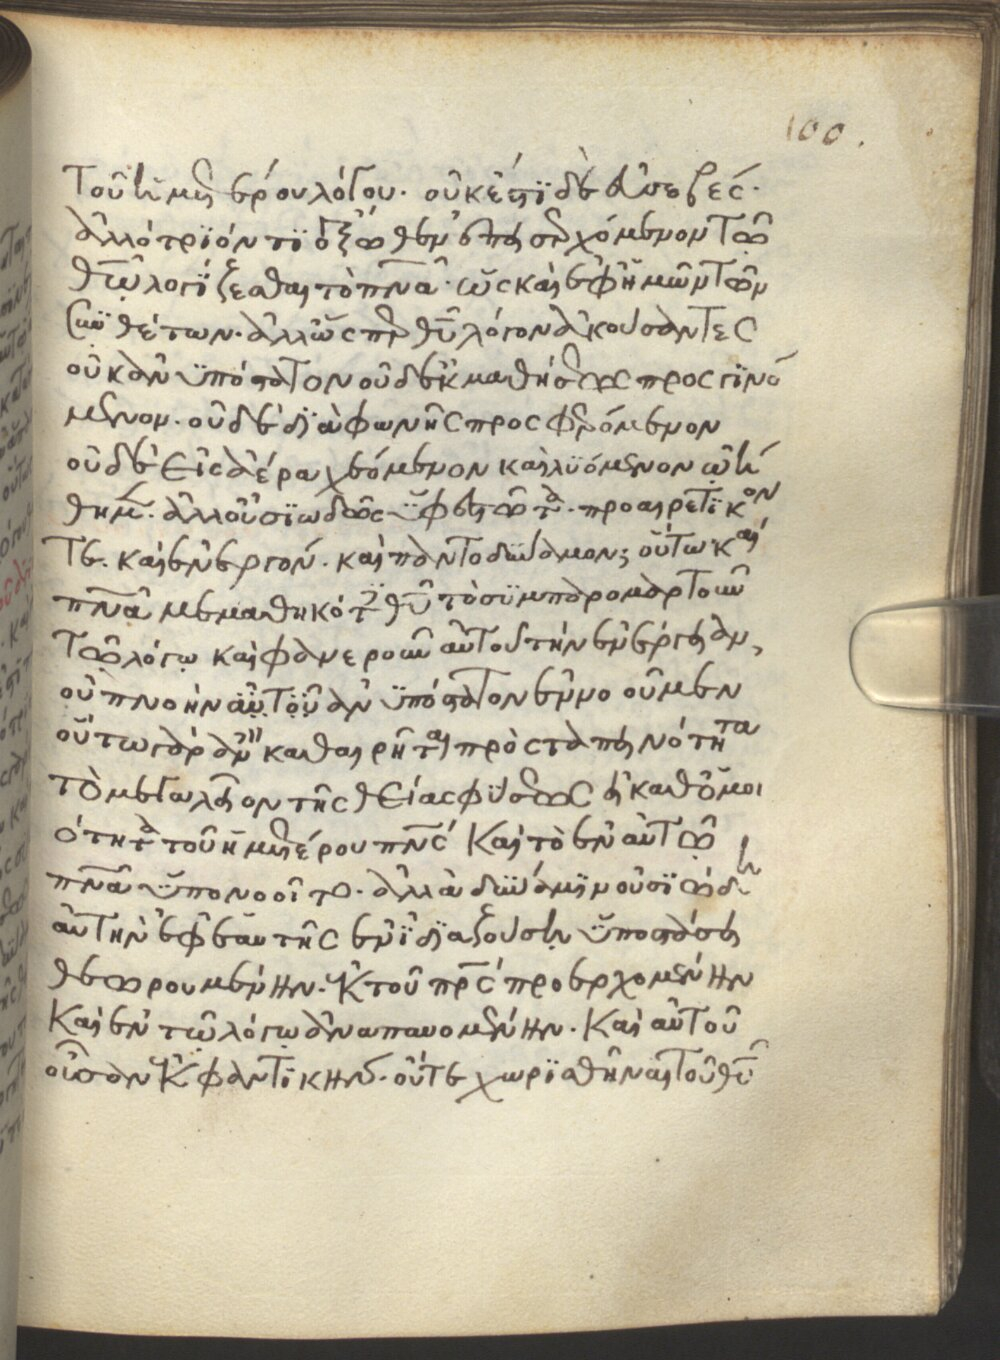 τοῦ ἡμετέρου λόγου. οὐκ ἔστι δὲ εὐσεβές.
ἀλλότριόν τι ἔξωθεν ἐπεισερχόμενον τῶ
θῶ λογίζεσθαι τὸ πνα. ὡς καὶ ἐφ ἡμῶν τῶν
συνθέτων. ἀλλ ὥσπερ θυ λόγον ἀκούσαντες
οὐκ ἀνϋπόστατον οὐδὲ ἐκ μαθήσεως προσγινό
μενον. οὐδὲ διὰ φωνῆς προσφερόμενον
οὐδὲ εἰς ἀέρα χεόμενον καὶ λυόμενον ὠή
θημεν. ἀλλ οὐσιωδῶς ὑφεστῶτα. προαιρετικὸν
τε. καὶ ἐνεργόν. καὶ παντοδύναμον; οὕτω καὶ
πνα μεμαθηκότες θυ τὸ συμπαρομαρτοῦν
τῶ λόγω καὶ φανεροῦν αὐτοῦ τὴν ἐνέργειαν,
οὐ πνοὴν αὐτοῦ ἀνϋπόστατον ἐννοοῦμεν
οὕτω γὰρ ἂν καθαιρῆται πρὸς ταπεινότητα
τὸ μεγαλεῖον τῆς θείας φύσεως εἰ καθ ὁμοι
ότητα τοῦ ἡμετέρου πνς καὶ τὸ ἐν αὐτῶ
πνα ὑπονοοῖτο. ἀλλὰ δύναμιν οὐσιώδη
αὐτὴν ἐφ ἑαυτῆς ἐν ἰδιαζούση ὑποστάσει
θεωρουμένην. ἐκ τοῦ πρς προερχομένην
καὶ ἐν τῶ λόγω ἀναπαυομένην. καὶ αὐτοῦ
οὖσαν ἐκφαντικήν. οὔτε χωρισθῆναι τοῦ θυ
100.